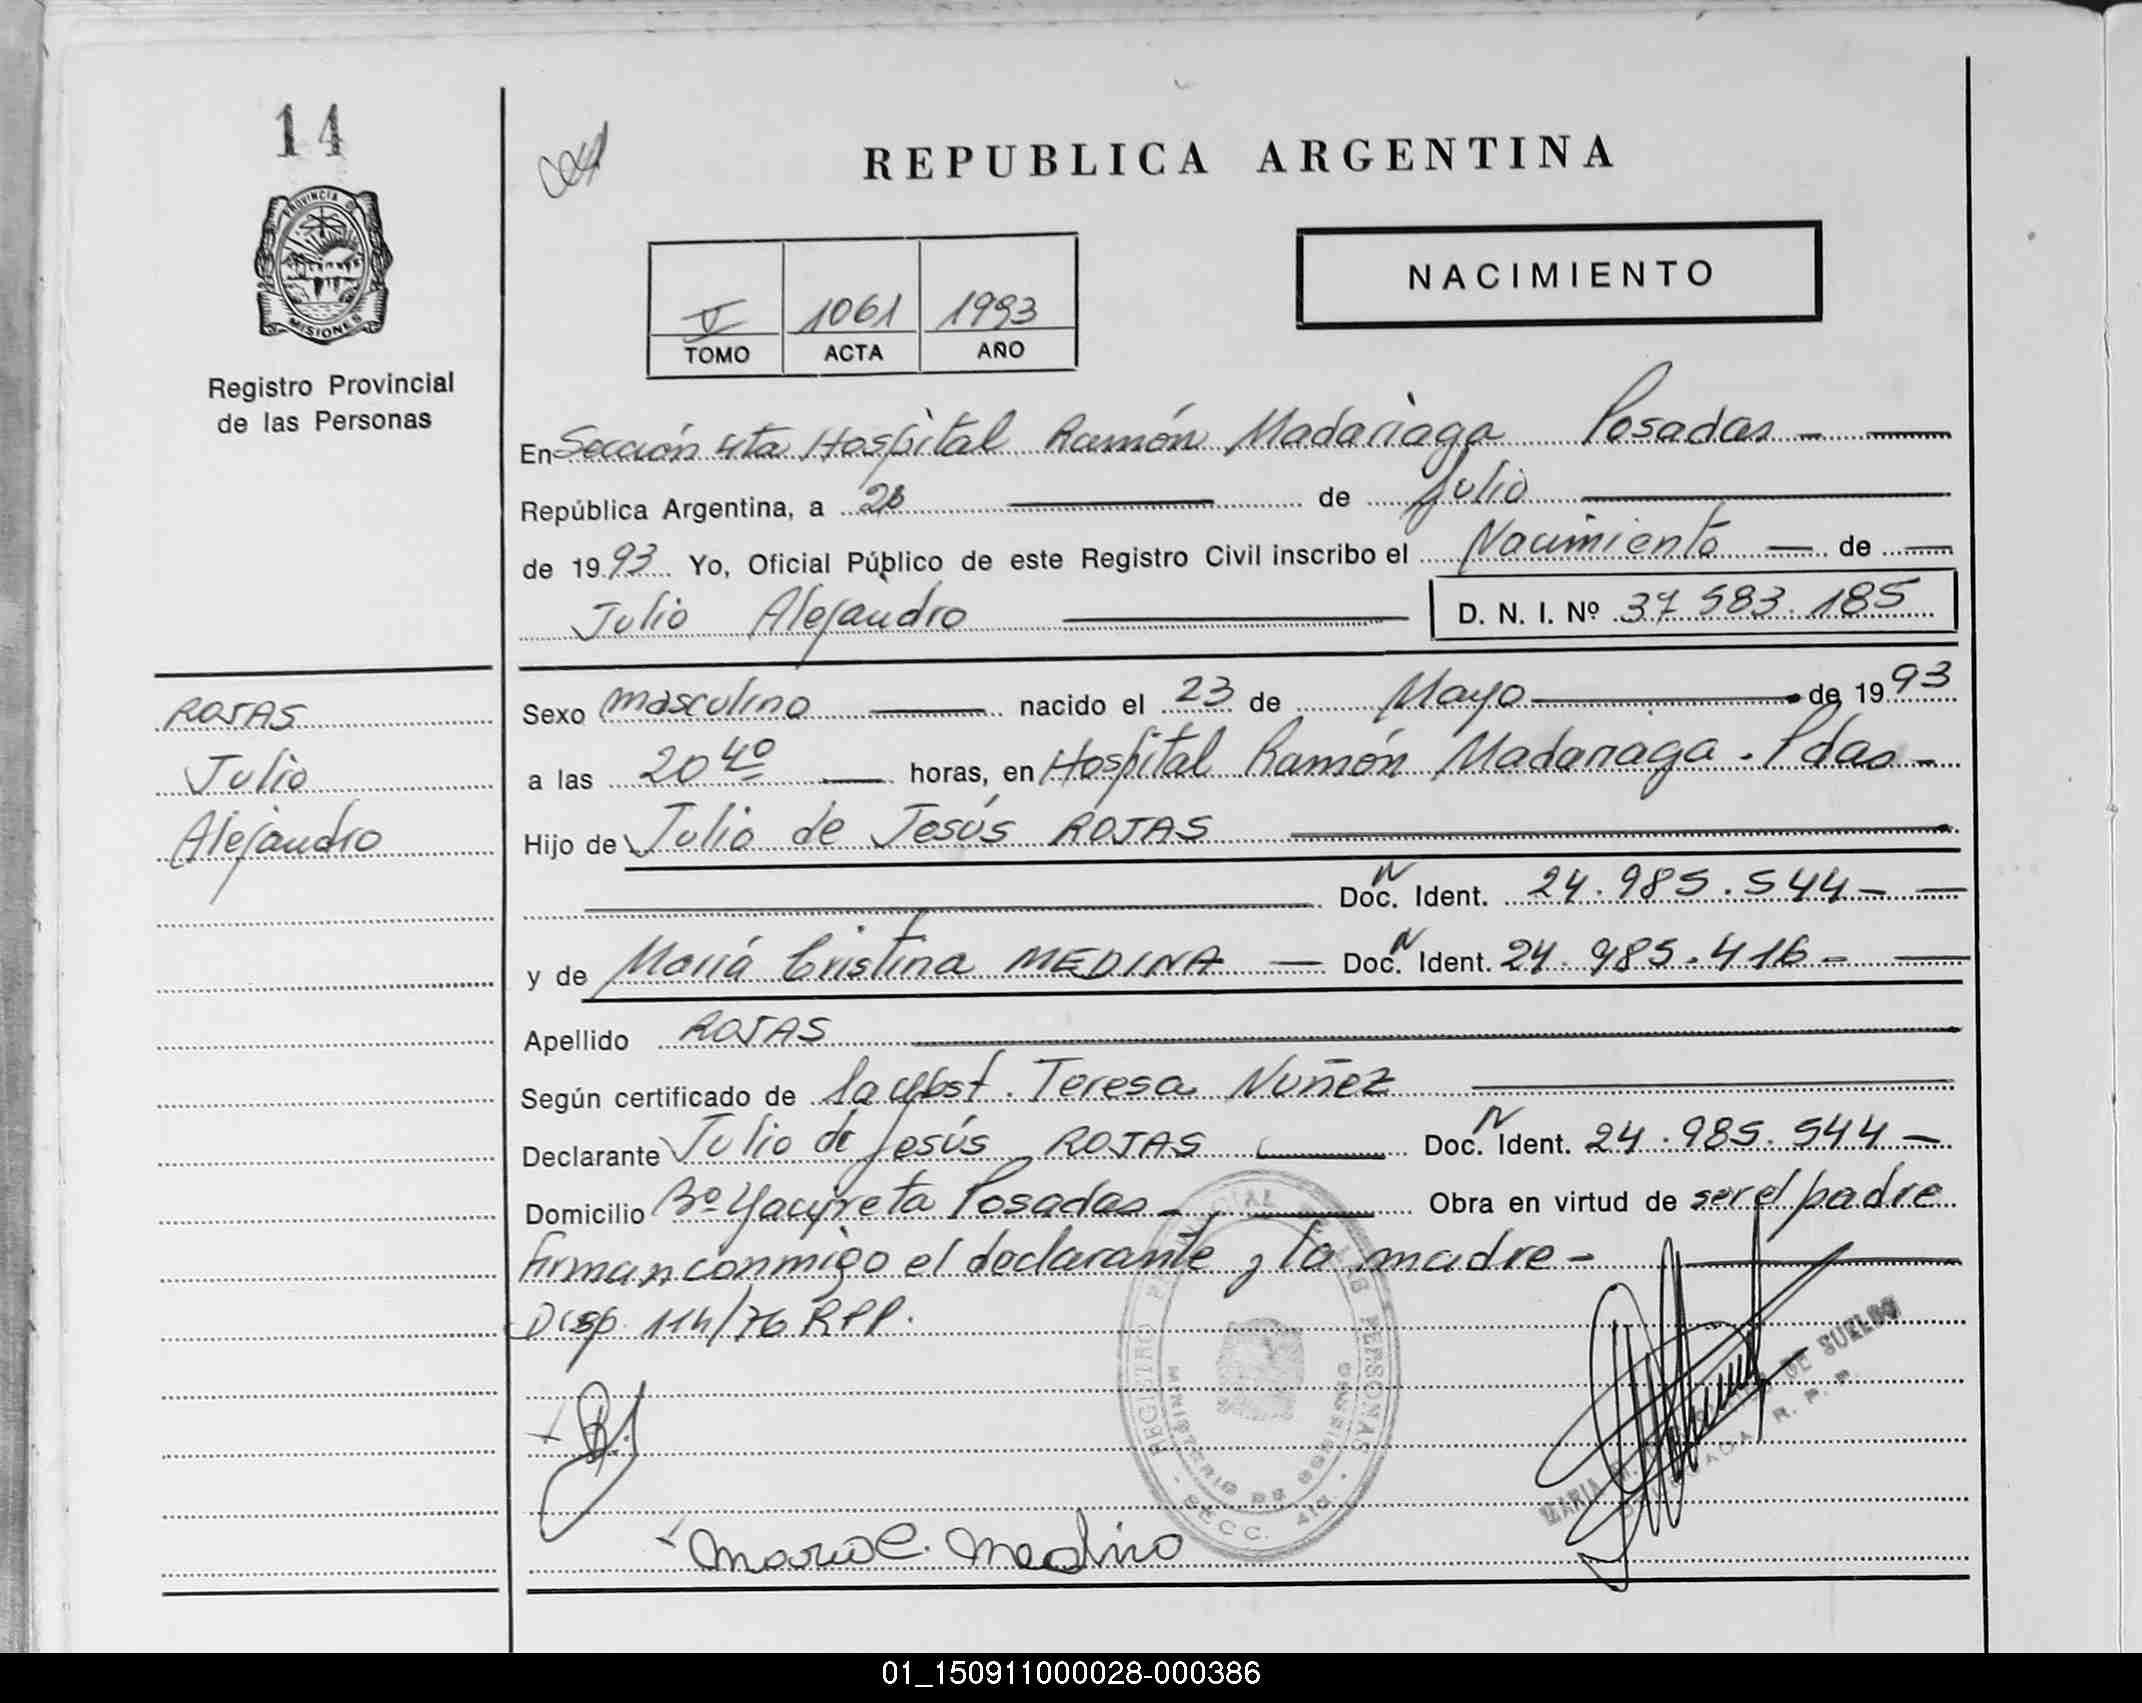 14
PROVINCIA DE
MISIONES
Registro Provincial
de las Personas
REPUBLICA ARGENTINA
NACIMIENTO
V 1061 1993
TOMO ACTA AÑO
En Sección 4ta Hospital Ramón Madariaga Posadas -
República Argentina, a 28 de Julio
de 1993 Yo, Oficial Público de este Registro Civil inscribo el Nacimiento de
Julio Alejandro D. N. I. Nº 37.583.185
ROJAS
Julio
Alejandro
Sexo masculino nacido el 23 de Mayo de 1993
a las 20 40 horas, en Hospital Ramón Madariaga. Pdas -
Hijo de Julio de Jesús ROJAS
Doc. N Ident. 24.985.544 -
y de María Cristina MEDINA Doc. N Ident. 24.985.416 -
Apellido ROJAS
Según certificado de la Obst. Teresa Nuñez
Declarante Julio de Jesús ROJAS Doc. N Ident. 24.985.544 -
Domicilio Bº Yacyreta Posadas - Obra en virtud de ser el padre
firman conmigo el declarante y la madre -
Disp. 114/76 RPP.
REGISTRO PROVINCIAL DE LAS PERSONAS
MINISTERIO DE GOBIERNO
SECC. 4ta.
MARIA DE SUELDO
DELEGADA R. P. P.
Maria C. Medina
01_150911000028-000386